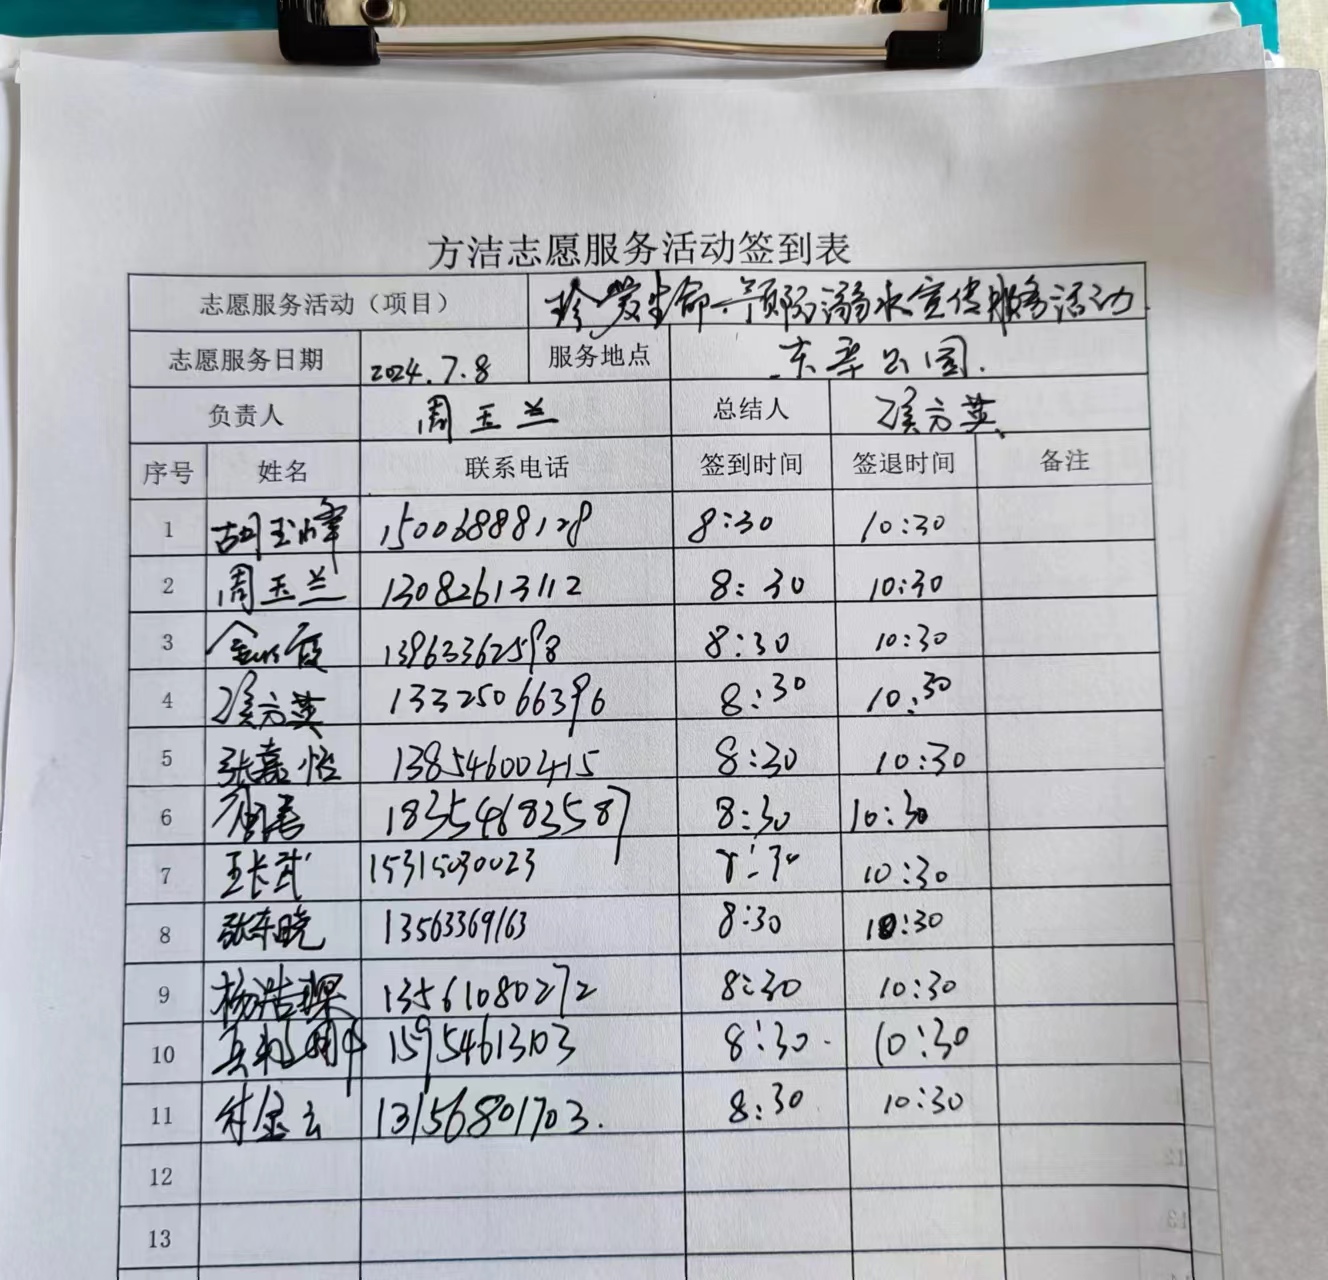 方洁志愿服务活动签到表
志愿服务活动（项目） 珍爱生命预防溺水宣传服务活动
志愿服务日期 2024.7.8 服务地点 东华公园.
负责人 周玉兰 总结人 侯方英
序号 姓名 联系电话 签到时间 签退时间 备注
1 胡玉峰 15006888128 8:30 10:30
2 周玉兰 13082613112 8:30 10:30
3 13963362598 8:30 10:30
4 侯方英 13325066396 8:30 10:30
5 张嘉怡 13854600415 8:30 10:30
6 18354683587 8:30 10:30
7 王长武 15315030023 8:30 10:30
8 张东晓 13563369163 8:30 10:30
9 杨浩琛 13561080272 8:30 10:30
10 15954613103 8:30 10:30
11 付金云 13156801703. 8:30 10:30
12
13